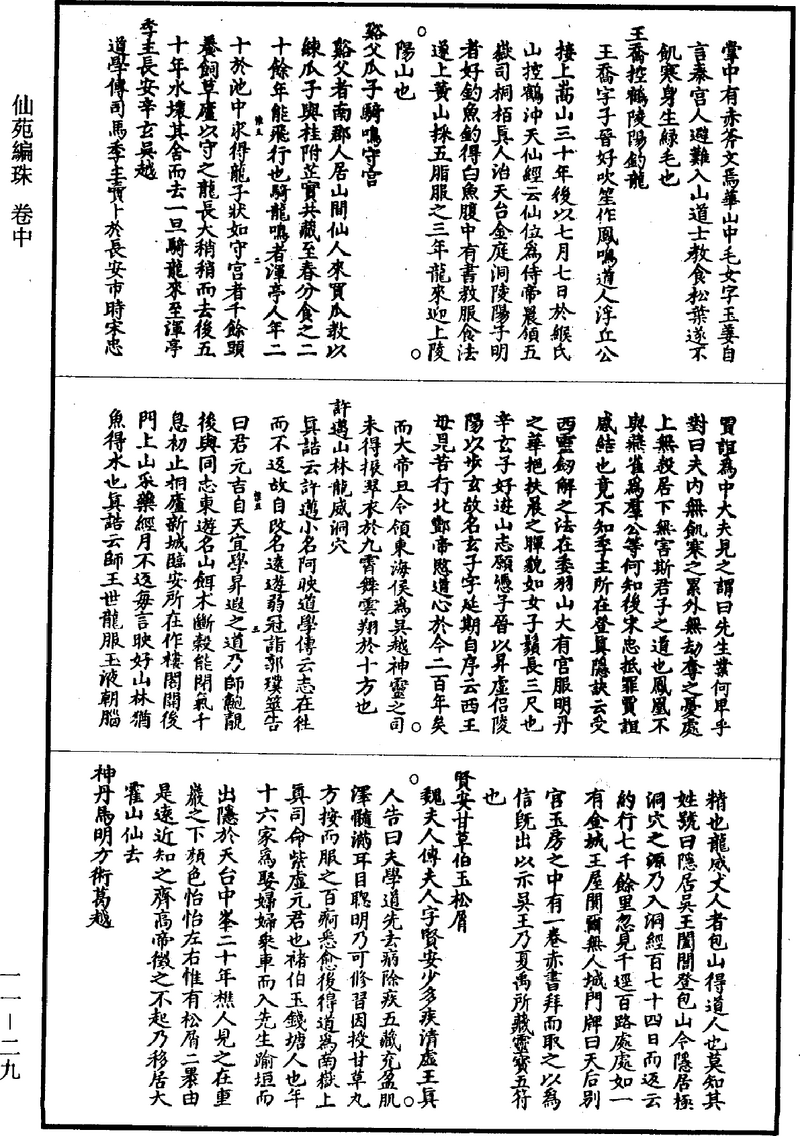 仙苑編珠 卷中
掌中有赤斧文焉華山中毛女字玉姜自
言秦宮人避難入山道士教食松葉遂不
飢寒身生綠毛也
王喬控鶴陵陽釣龍
王喬字子晉好吹笙作鳳鳴道人浮丘公
接上嵩山三十年後以七月七日於緱氏
山控鶴沖天仙經云仙位為侍帝晨領五
嶽司桐栢真人治天台金庭洞陵陽子明
者好釣魚釣得白魚腹中有書教服食法
遂上黃山採五脂服之三年龍來迎上陵
陽山也
谿父瓜子騎鳴守宮
谿父者南郡人居山間仙人來買瓜教以
鍊瓜子與桂附芷實共藏至春分食之二
十餘年能飛行也騎龍鳴者渾亭人年二
十於池中求得龍子狀如守宮者千餘頭
養飼草廬以守之龍長大稍稍而去後五
十年水壞其舍而去一旦騎龍來至渾亭
季主長安辛玄吳越
道學傳司馬季主賣卜於長安市時宋忠
賈誼為中大夫見之謂曰先生業何卑乎
對曰夫內無飢寒之累外無劫奪之憂處
上無殺居下無害斯君子之道也鳳凰不
與飛雀為羣公等何知後宋忠抵罪賈誼
感結也竟不知季主所在登真隱訣云受
西靈劒解之法在委羽山大有宮服明丹
之華挹扶晨之暉貌如女子鬚長三尺也
辛玄子好遊山志願憑子晉以昇虛侶陵
陽以步玄故名玄子字延期自序云西王
母見苦行北酆帝愍道心於今二百年矣
而大帝旦令領東海侯為吳越神靈之司
未得振翠衣於九霄舞雲翔於十方也
許邁山林龍威洞穴
真誥云許邁小名阿映道學傳云志在往
而不返故自改名遠遊弱冠詣郭璞筮告
曰君元吉自天宜學昇遐之道乃師鮑靚
後與同志東遊名山餌朮斷穀能閉氣千
息初止桐廬新城臨安所在作樓閣關後
門上山采藥經月不返每言映好山林猶
魚得水也真誥云師王世龍服玉液朝腦
精也龍威丈人者包山得道人也莫知其
姓號曰隱居吳王闔閭登包山令隱居極
洞穴之源乃入洞經百七十四日而返云
約行七千餘里忽見千逕百路處處如一
有金城玉屋閴爾無人城門牌曰天后別
宮玉房之中有一卷赤書拜而取之以為
信旣出以示吳王乃夏禹所藏靈寶五符
也
賢安甘草伯玉松屑
魏夫人傳夫人字賢安少多疾清虛王真
人告曰夫學道先去病除疾五藏充盈肌
澤髓滿耳目聰明乃可修習因授甘草丸
方按而服之百痾悉愈後得道為南嶽上
真司命紫虛元君也褚伯玉錢塘人也年
十六家為娶婦婦乘車而入先生踰垣而
出隱於天台中峯二十年樵人見之在重
巖之下顏色怡怡左右惟有松屑二裹由
是遠近知之齊高帝徵之不起乃移居大
霍山仙去
神丹馬明方術葛越
一一—二九